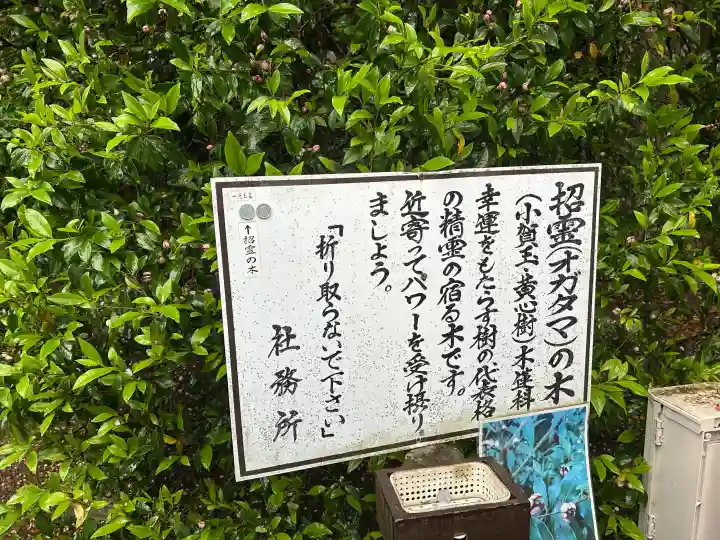 招霊(オガタマ)の木
(小賀玉・黄心樹)木蓮科
幸運をもたらす樹の代表格
の精霊の宿る木です。
近寄ってパワーを受け摂り
ましょう。
「折り取らないで下さい」
社務所
↑招霊の木